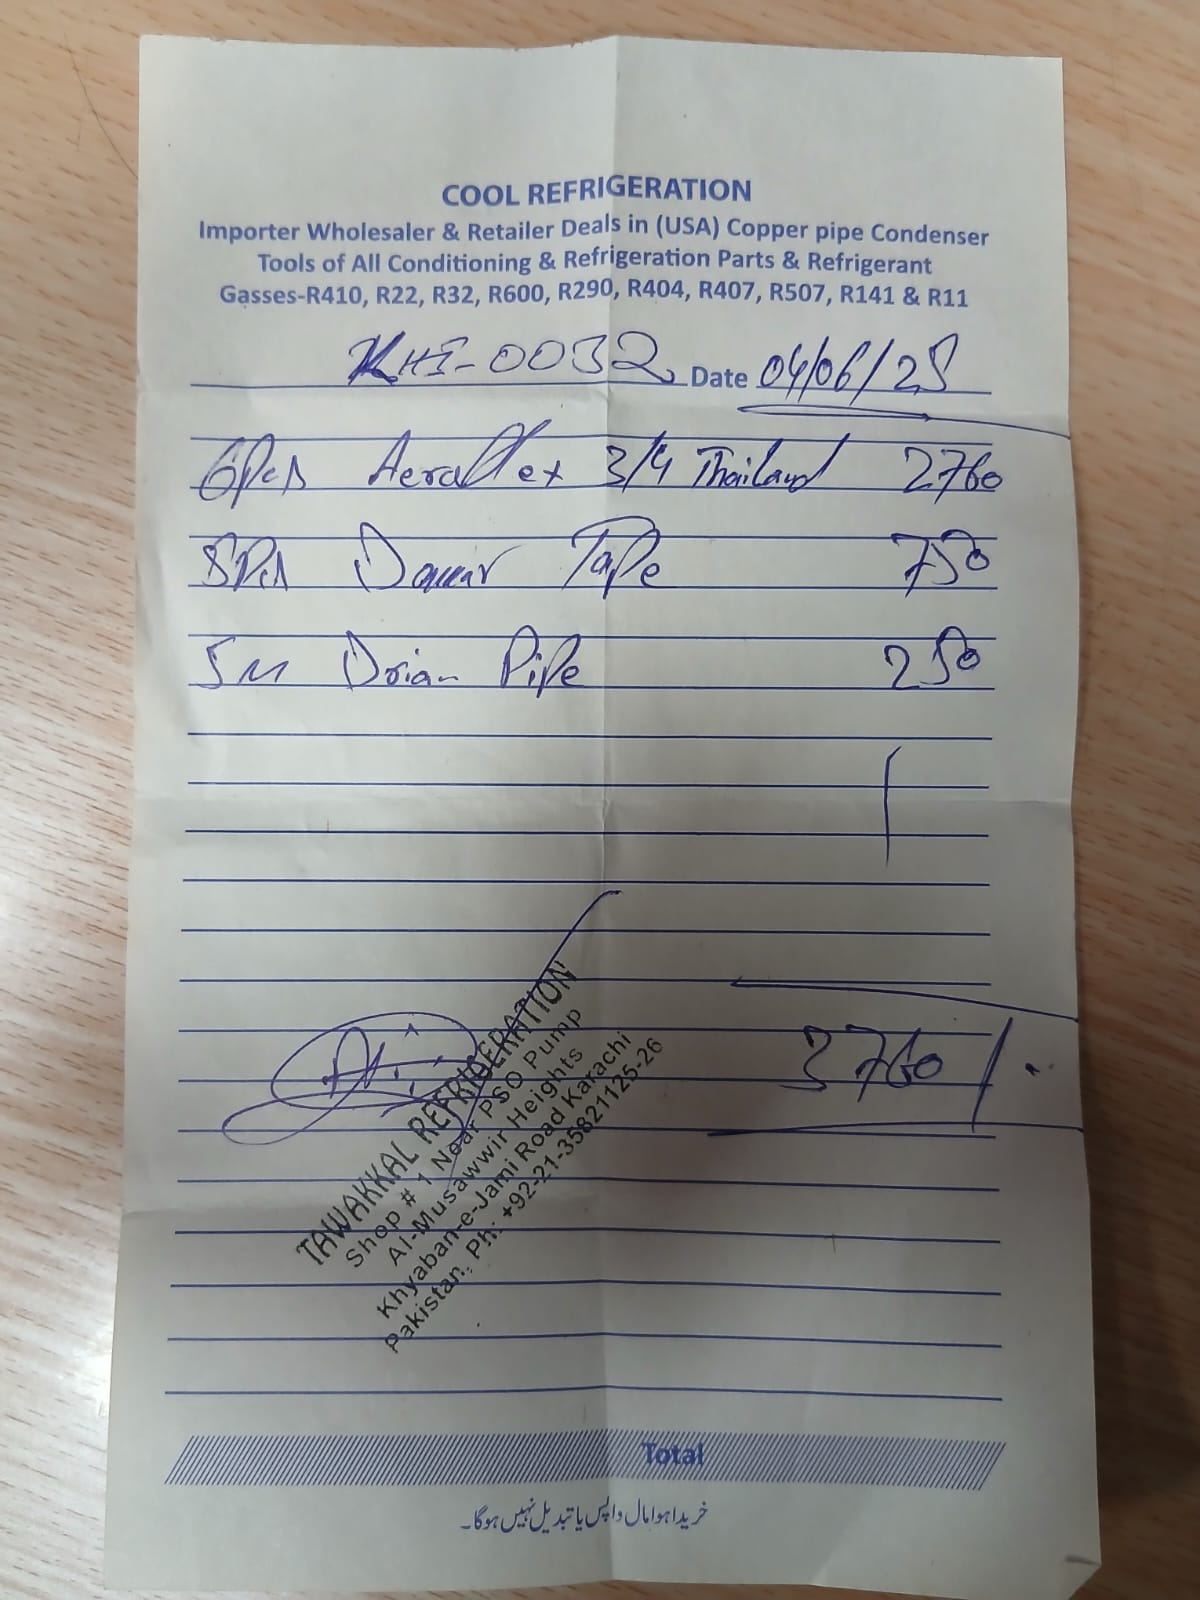 COOL REFRIGERATION
Importer Wholesaler & Retailer Deals in (USA) Copper pipe Condenser
Tools of All Conditioning & Refrigeration Parts & Refrigerant
Gasses-R410, R22, R32, R600, R290, R404, R407, R507, R141 & R11
KHI-0032 Date 04/06/25
6Pcs Aeroflex 3/4 Thailand 2760
5Pcs Tape 750
5M Drian Pipe 250
3760/..
TAWAKKAL REFRIGERATION
Shop # 1 Near PSO Pump
Al-Musawwir Heights
Khyaban-e-Jami Road Karachi
Pakistan. Ph: +92-21-35821125-26
Total
خریدا ہوا مال واپس یا تبدیل نہیں ہوگا۔